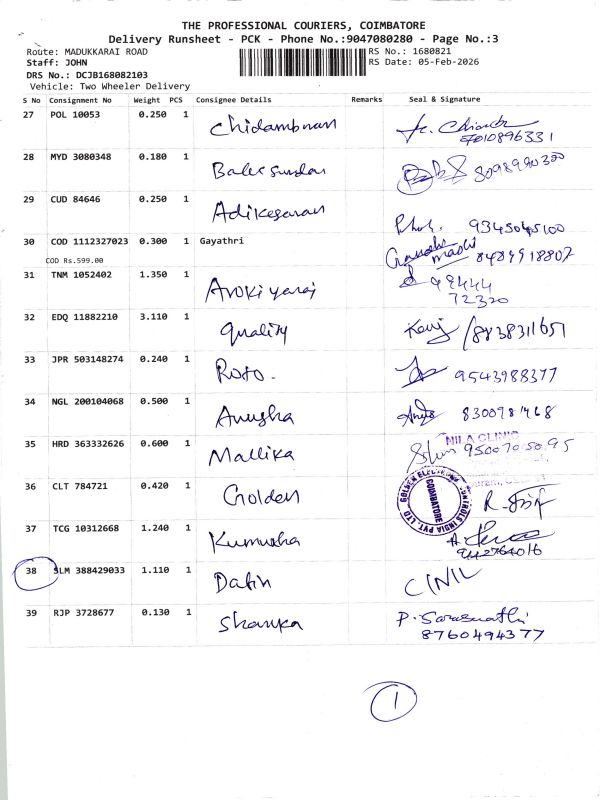 THE PROFESSIONAL COURIERS, COIMBATORE
Delivery Runsheet - PCK - Phone No.:9047080280 - Page No.:3
Route: MADUKKARAI ROAD RS No.: 1680821
Staff: JOHN RS Date: 05-Feb-2026
DRS No.: DCJB168082103
Vehicle: Two Wheeler Delivery
S No Consignment No Weight PCS Consignee Details Remarks Seal & Signature
27 POL 10053 0.250 1 Chidambnam
28 MYD 3080348 0.180 1 8098990300
29 CUD 84646 0.250 1 Adikesavan
9345045100
30 COD 1112327023 0.300 1 Gayathri 8489918807
COD Rs.599.00
31 TNM 1052402 1.350 1 Arokiyaraj 98444
72320
32 EDQ 11882210 3.110 1 Quality 8838311651
33 JPR 503148274 0.240 1 Roto. 9543988377
34 NGL 200104068 0.500 1 Anusha 8300981468
35 HRD 363332626 0.600 1 Mallika NILA CLINIC
95007050.95
36 CLT 784721 0.420 1 Golden GOLDEN ELECTRONIC CONTROLS INDIA PVT. LTD
COIMBATORE
37 TCG 10312668 1.240 1 Kumusha
9442764016
38 SLM 388429033 1.110 1 Datin CINIL
39 RJP 3728677 0.130 1 Shanka P. Saraswathi
8760494377
1